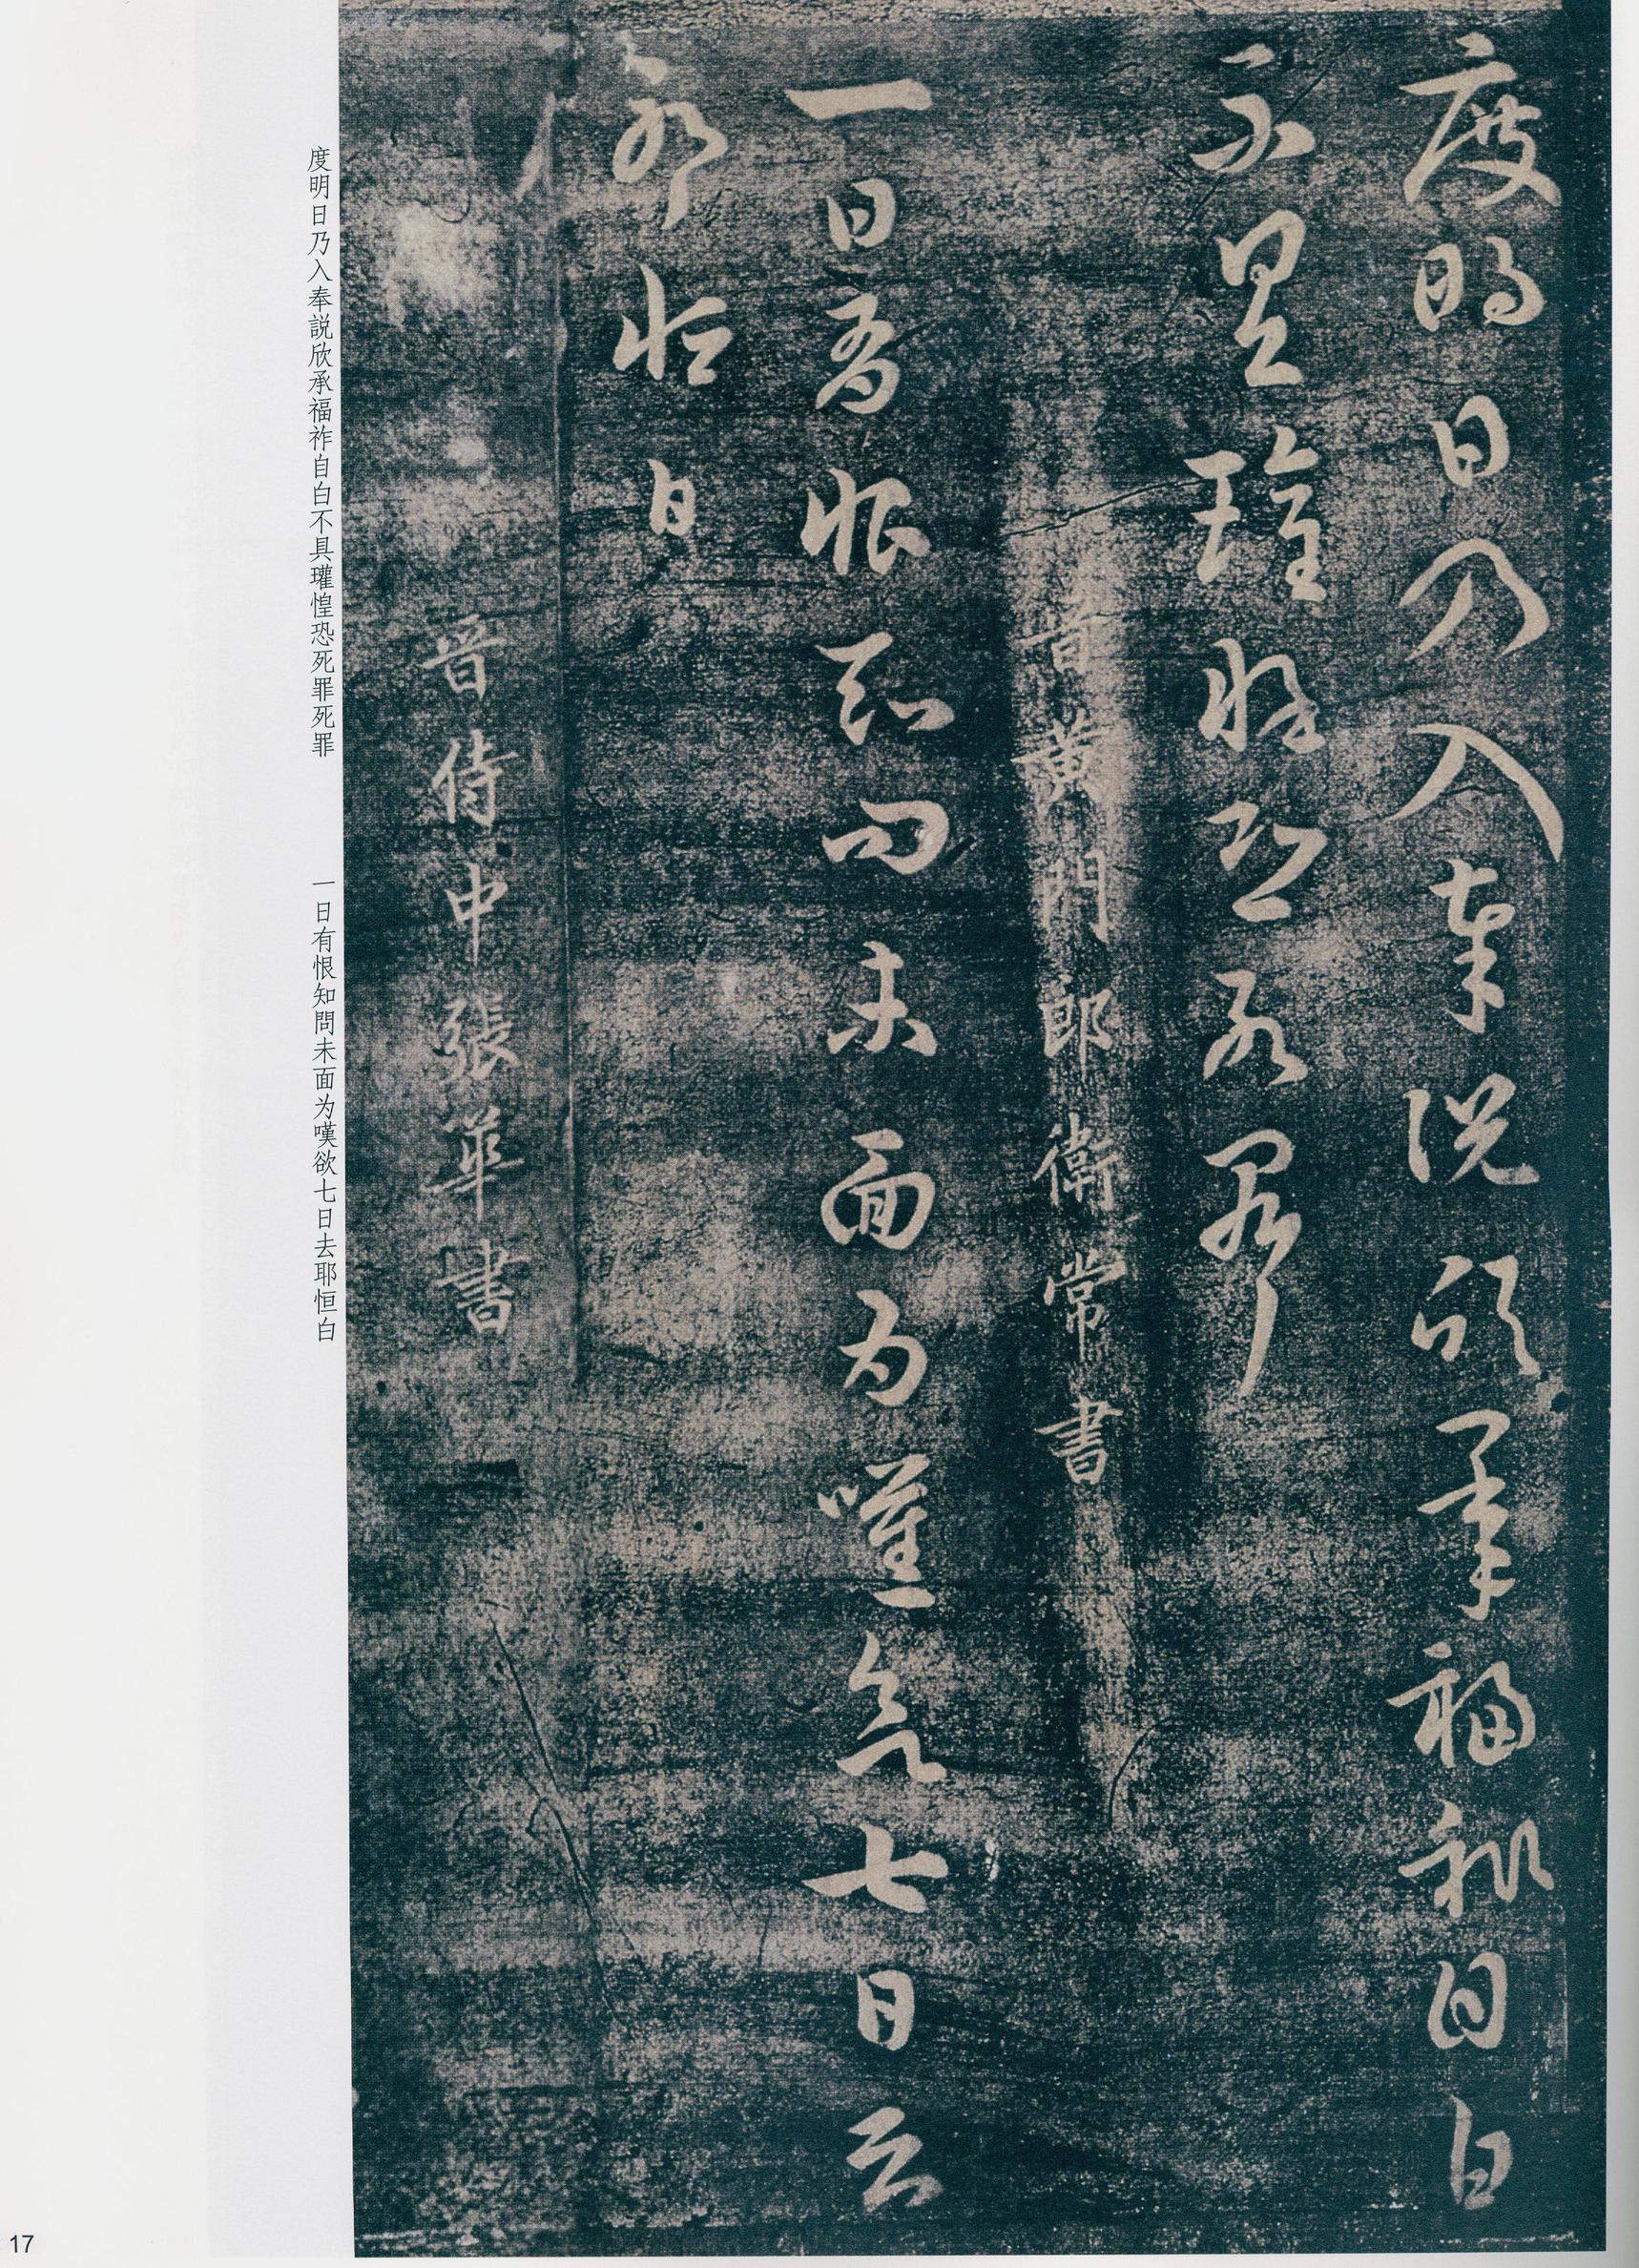 度明日乃入奉説欣承福祚自白
不具瓘惶恐死罪死罪
晉黃門郎衛常書
一日有恨知問未面为嘆欲七日去
耶恒白
晉侍中張華書
度明日乃入奉説欣承福祚自白不具瓘惶恐死罪死罪
一日有恨知問未面为嘆欲七日去耶恒白
17